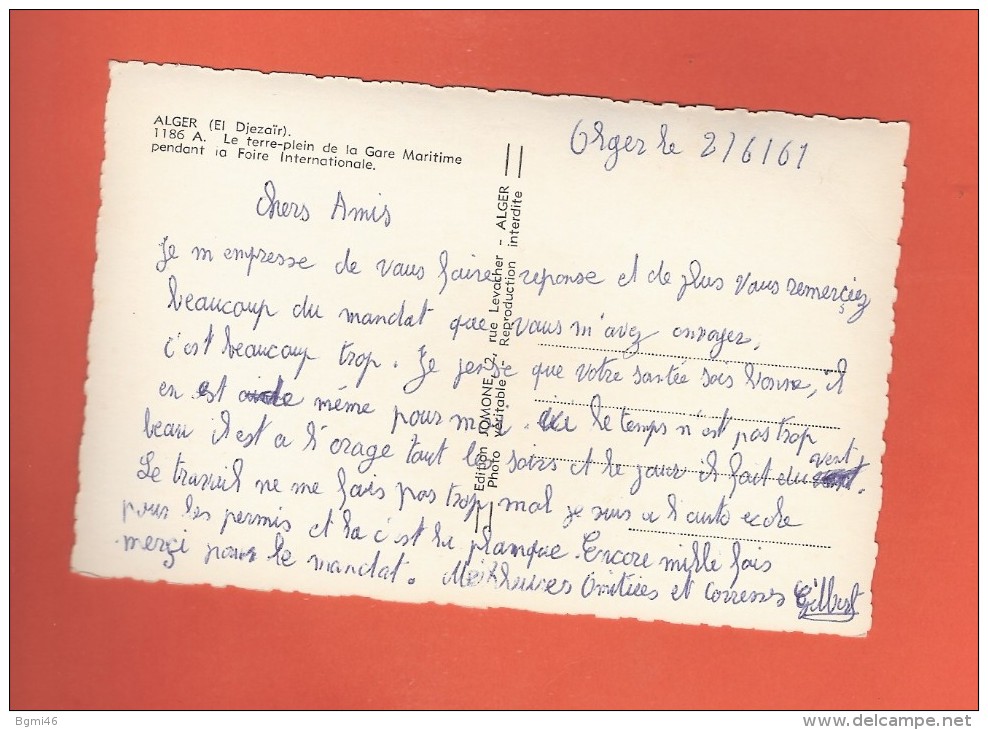 ALGER (El Djezaïr).
1186 A. Le terre-plein de la Gare Maritime
pendant la Foire Internationale.
Alger le 2/6/61
Chers Amis
Je m empresse de vous faire reponse et de plus vous remerçiez
beaucoup du mandat que vous m'avez envoyez,
c'est beaucoup trop. Je pense que votre santée sois bonne, il
en est de même pour moi. le temps n'est pas trop
beau il est a l'orage tout les soirs et le jour il fait du vent.
Le travail ne me fais pas trop mal je suis a l'auto ecole
pour les permis et la c'est la planque. Encore mille fois
merçi pour le mandat. Meilleures Amitiées et Caresses Gilbert
Edition JOMONE, 2, rue Levacher - ALGER
Photo véritable - Reproduction interdite
Bgmi46
www.delcampe.net